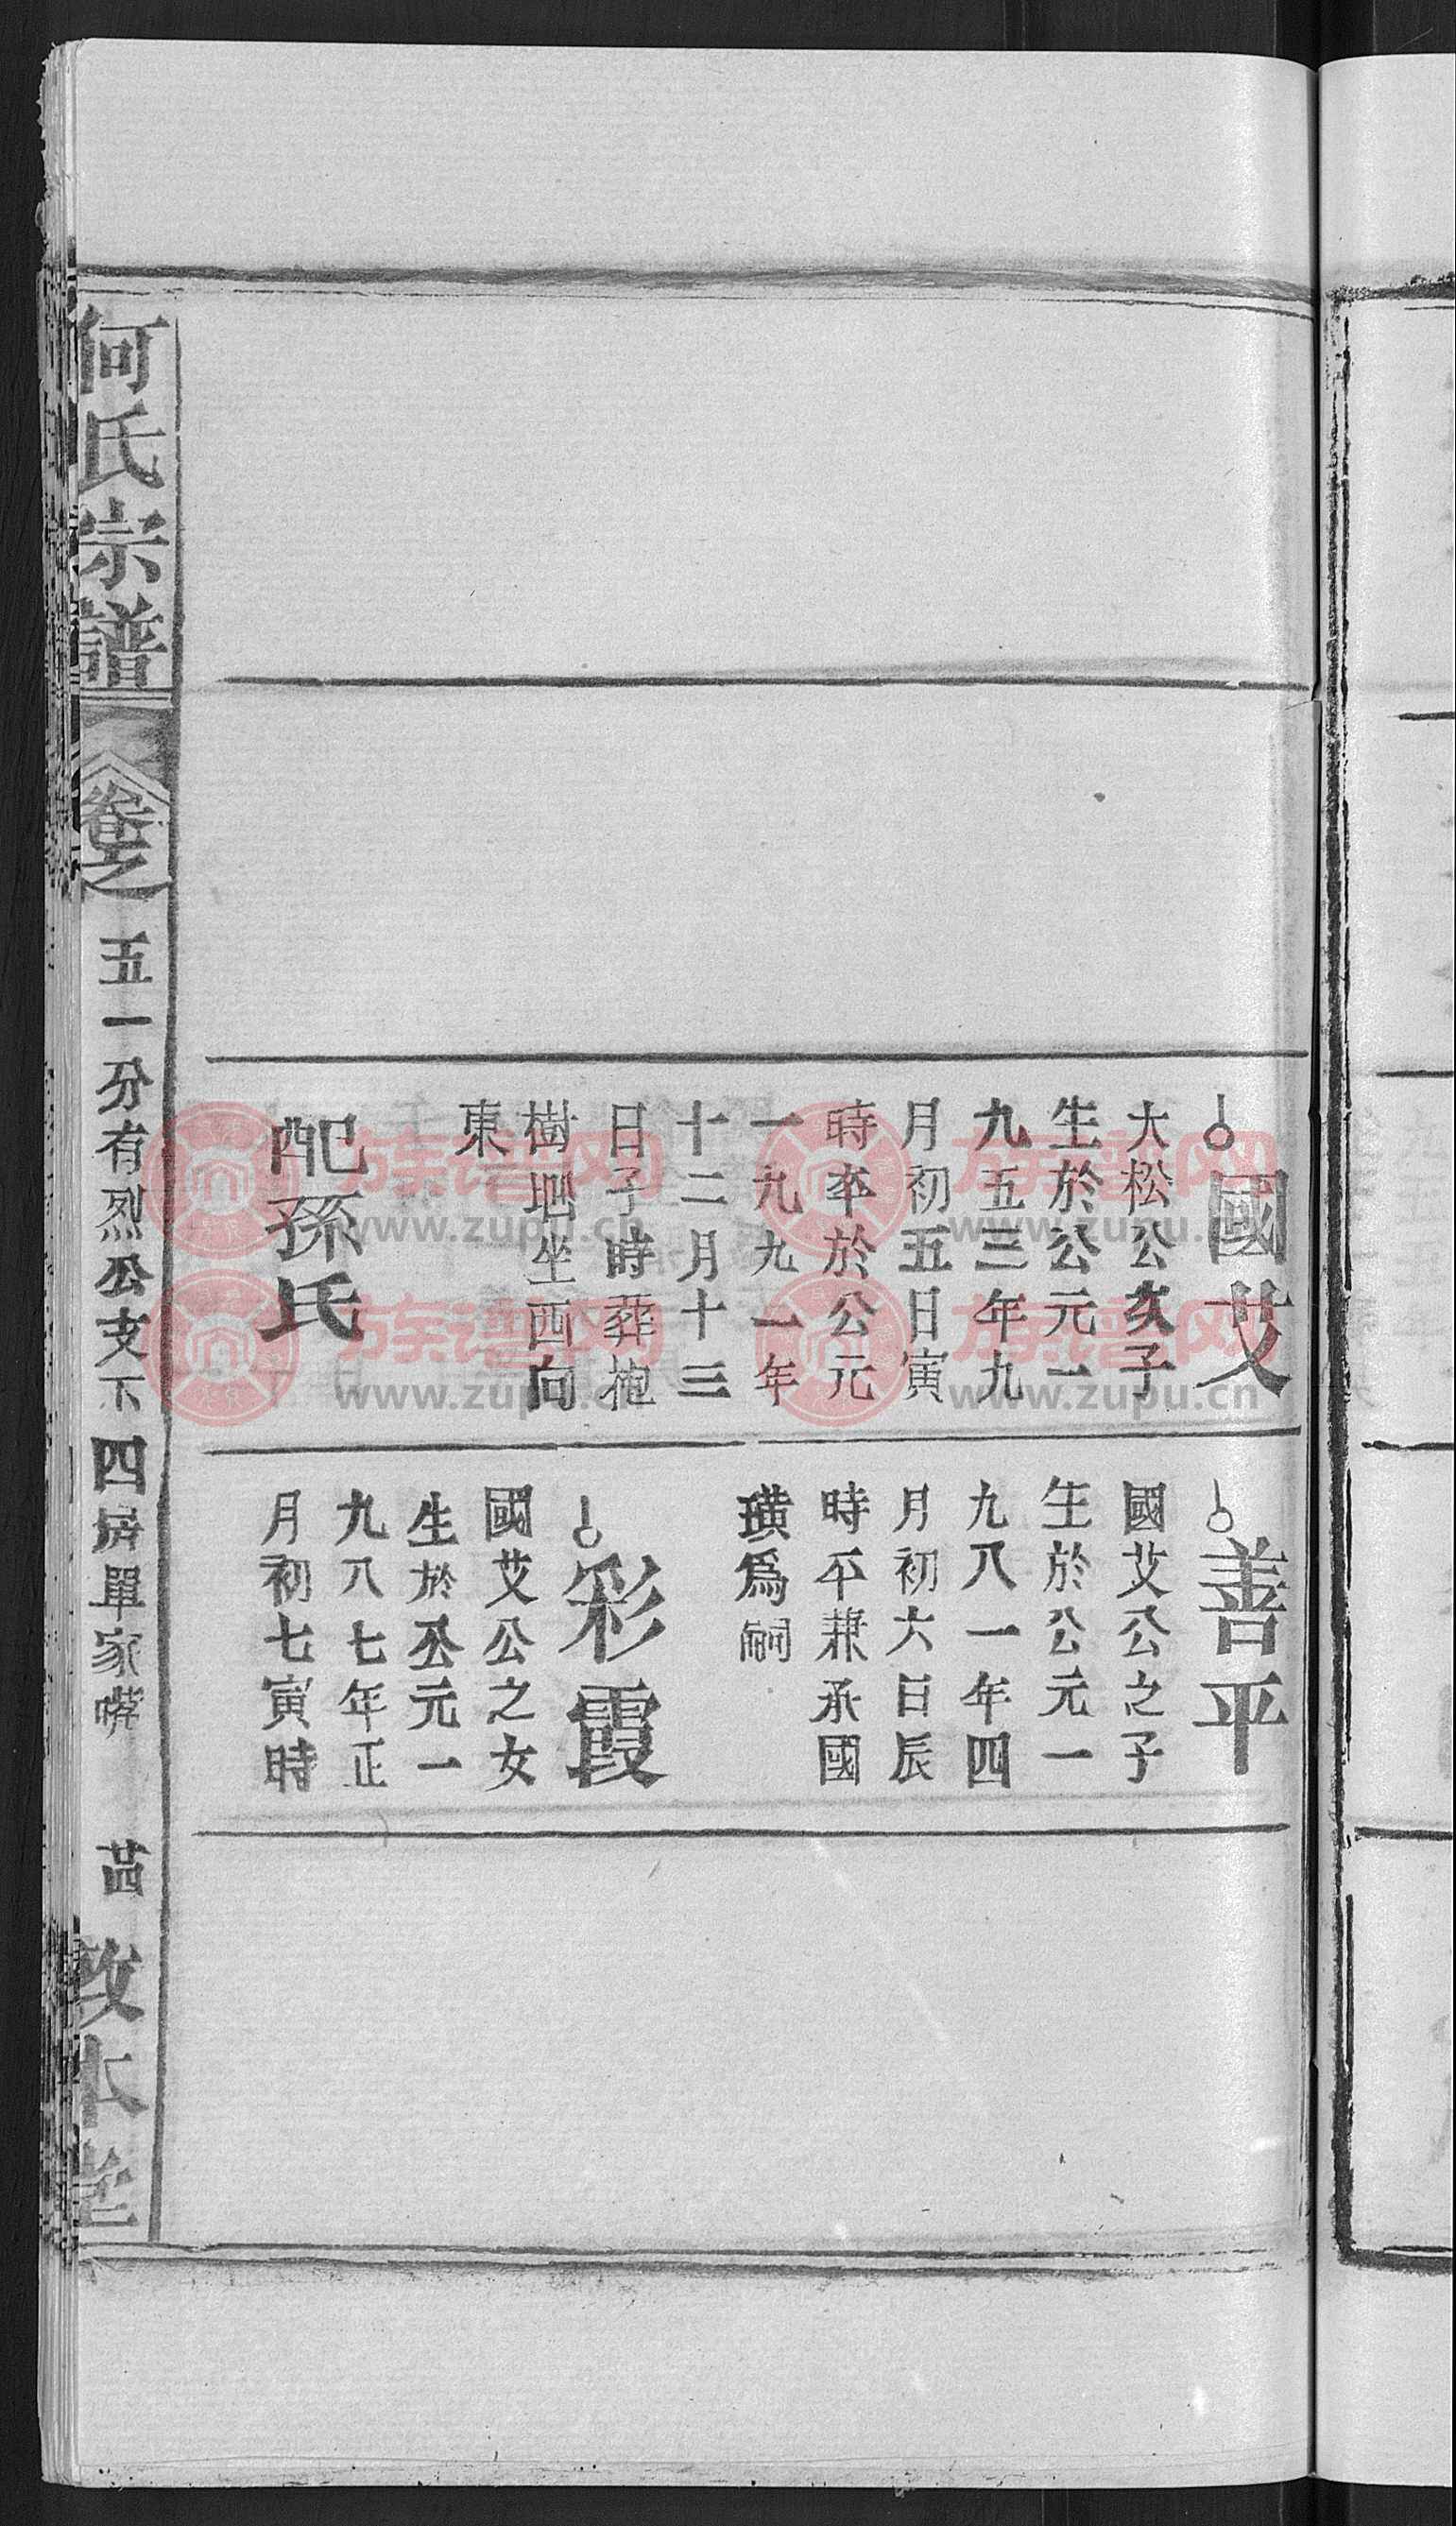 國艾
大松公次子
生於公元一
九五三年九
月初五日寅
時卒於公元
一九九一年
十二月十三
日子時葬枹
樹地坐西向
東
配孫氏
善平
國艾公之子
生於公元一
九八一年四
月初六日辰
時平兼承國
璜為嗣
彩霞
國艾公之女
生於公元一
九八七年正
月初七寅時
何氏宗譜
卷之
五一分有烈公支下四房單家嘴
敦本堂
族谱网
www.zupu.cn
族谱网
www.zupu.cn
族谱网
www.zupu.cn
族谱网
www.zupu.cn